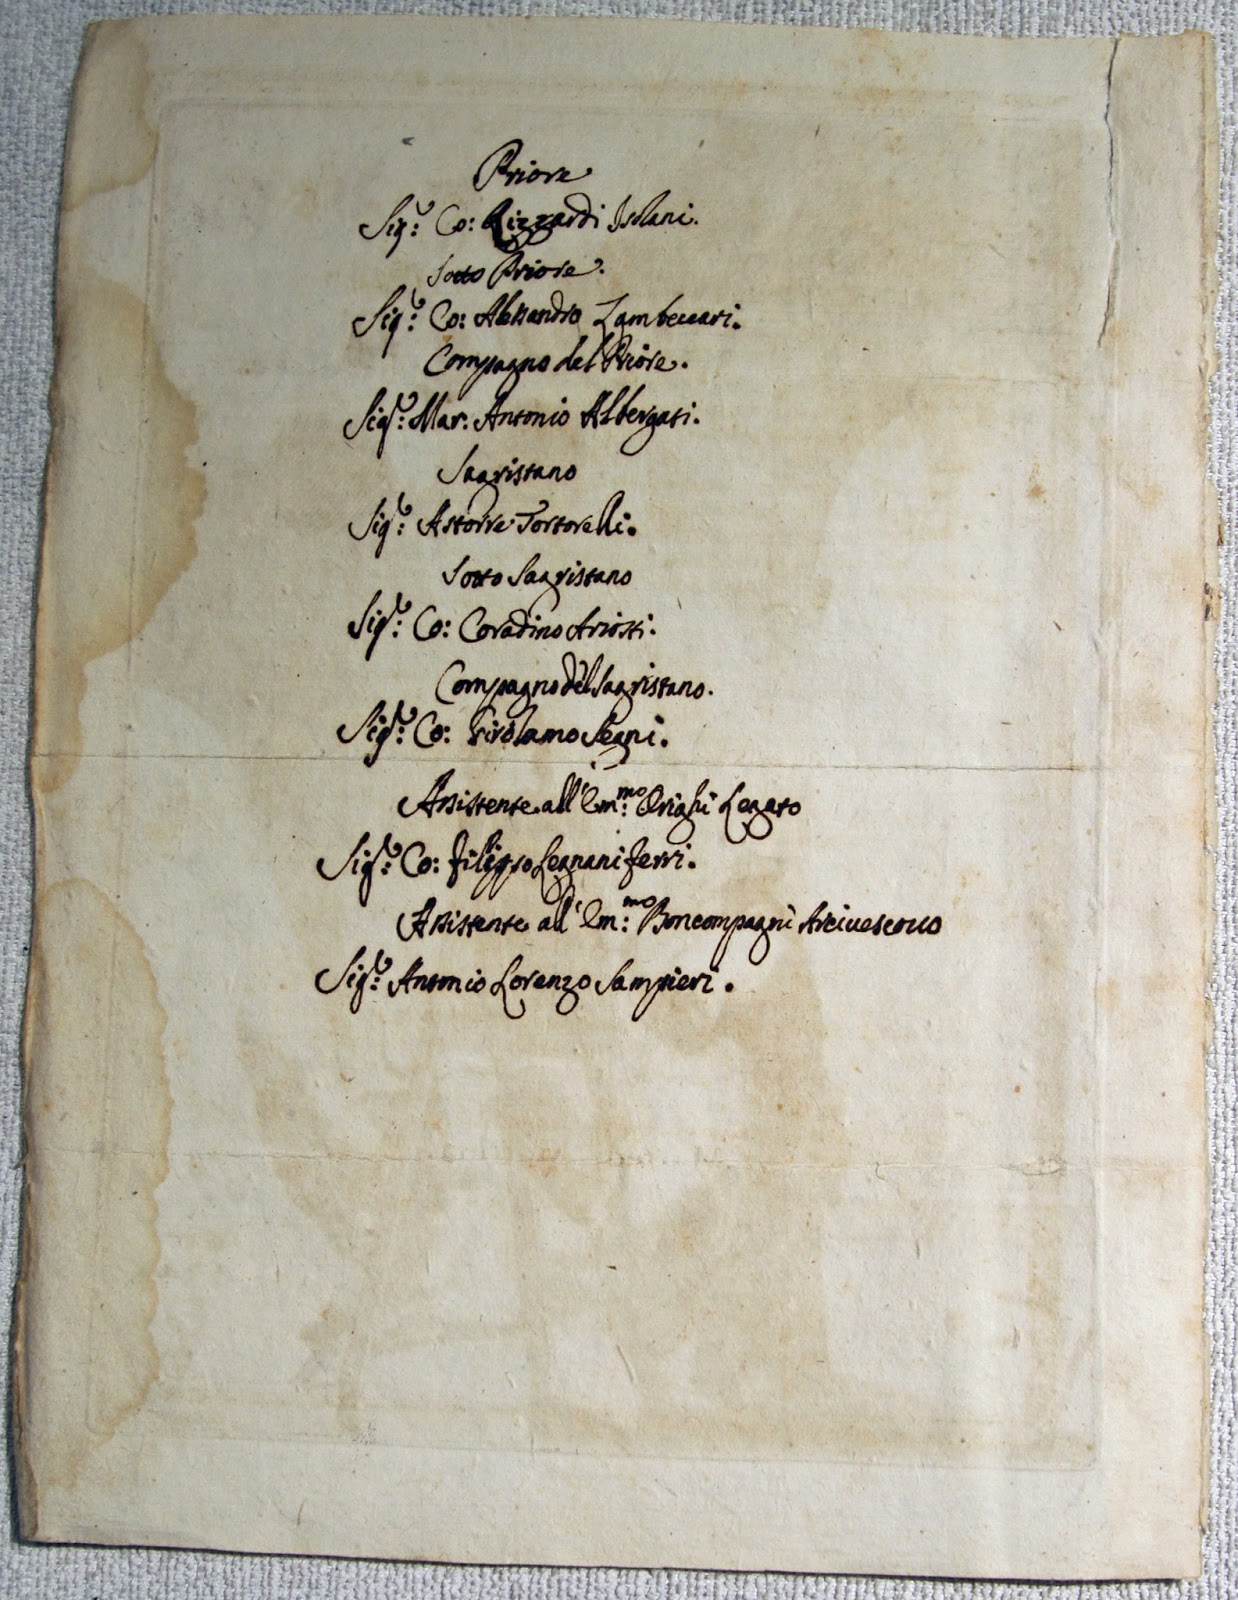 Priore
Sig.r Co: Rizzardi Isolani.
Sotto Priore.
Sig.r Co: Alessandro Zambeccari.
Compagno del Priore.
Sig.r Mar. Antonio Albergati.
Sagristano
Sig.r Astorre Tortorelli.
Sotto Sagristano
Sig.r Co: Coradino Ariosti.
Compagno del Sagristano.
Sig.r Co: Girolamo Segni.
Assistente all' Em.mo Orighi Legato
Sig.r Co: Filippo Legnani Ferri.
Assistente all' Em.mo Boncompagni Arcivescovo
Sig.r Antonio Lorenzo Sampieri.